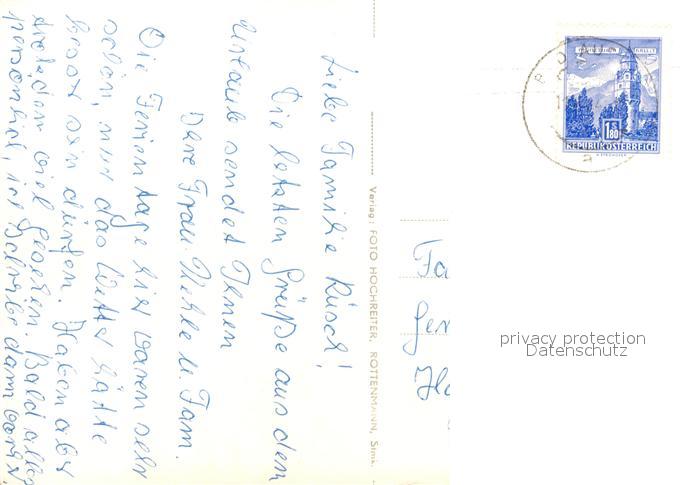 Liebe Familie Rüsch!
Die letzten Grüße aus dem
Urlaub sendet Ihnen
Ihre Frau Nehle u. Fam.
Die Ferientage hier waren sehr
schön, nur das Wetter hätte
besser sein dürfen. Haben aber
trotzdem viel gesehen. Bald alles
persönlich, ich schreibe dann vorher.
Verlag: FOTO HOCHREITER, ROTTENMANN, Stmk.
1.80
REPUBLIK ÖSTERREICH
Fa
Ha
privacy protection
Datenschutz